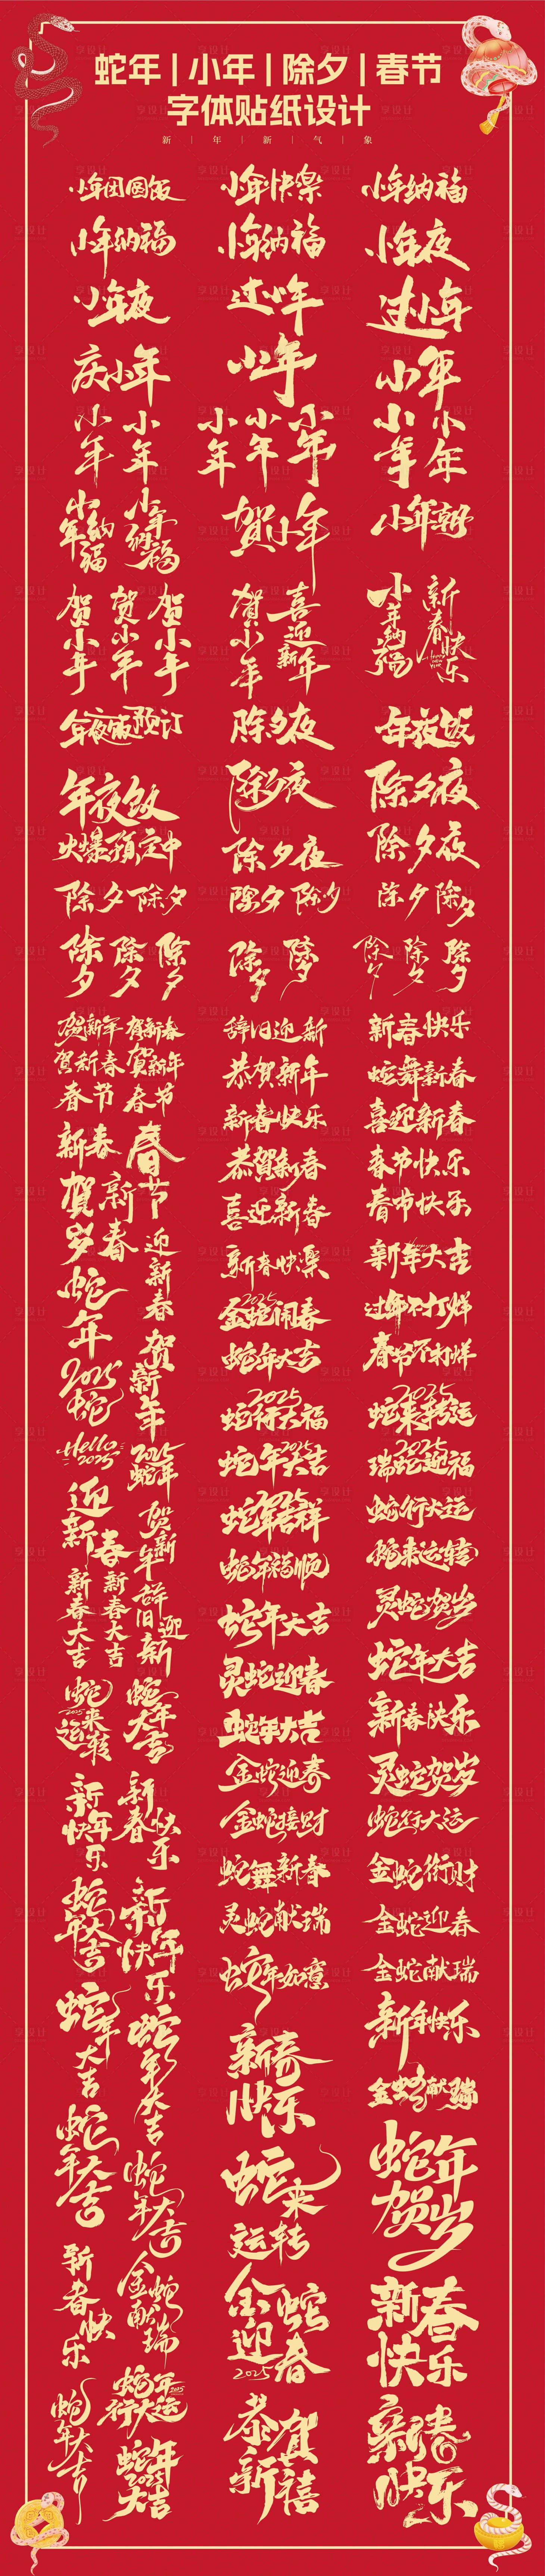 蛇年|小年|除夕|春节
字体贴纸设计
新 | 年 | 新 | 气 | 象
小年团圆饭 小年快樂 小年纳福
小年纳福 小年纳福 小年夜
小年夜 过小年 过小年
庆小年 小年 小年
小年 小年 小年 小年 小年 小年 小年
小年纳福 小年纳福 贺小年
贺小年 贺小年 贺小年 贺小年 喜迎新年 小年纳福 新春快乐
年夜饭预订 除夕夜 年夜饭
年夜饭 除夕夜 除夕夜
火爆预定中 除夕夜 除夕夜
除夕 除夕 除夕 除夕 除夕 除夕
除夕 除夕 除夕 除夕 除夕 除夕 除夕 除夕
贺新年 贺新春 辞旧迎新 新春快乐
贺新春 賀新年 恭贺新年 蛇舞新春
春节 春节 新春快乐 喜迎新春
新春 春节 恭賀新春 春节快乐
贺岁 新春 喜迎新春 春节快乐
迎新春 新春快樂 新年大吉
蛇年 贺新年 2025 金蛇闹春 过年不打烊
2025 蛇 蛇年大吉 春节不打烊
Hello 2025 2025 蛇年 2025 蛇行大福 2025 蛇来转运
迎新春 贺新年 蛇年大吉 2025 2025 瑞蛇迎福
新春大吉 新春大吉 辞旧迎新 蛇年吉祥 蛇行大运
蛇年福顺 蛇来运转
蛇年大吉 灵蛇贺岁
蛇来运转 2025 蛇年大吉 灵蛇迎春 蛇年大吉
蛇年大吉 新春快乐
新年快乐 新春快乐 金蛇迎春 灵蛇贺岁
金蛇接财 蛇行大运
蛇年大吉 新年快乐 蛇舞新春 金蛇衔财
灵蛇献瑞 金蛇迎春
蛇年大吉 蛇年大吉 蛇年如意 金蛇献瑞
新春快乐 新年快乐
金蛇献瑞
蛇年大吉 蛇年大吉 蛇来运转 蛇年贺岁
新春快乐 金蛇献瑞 金蛇迎春 2025 新春快乐
蛇年大吉 蛇年行大运 2025 恭贺新禧 新春快乐
蛇年大吉 2025